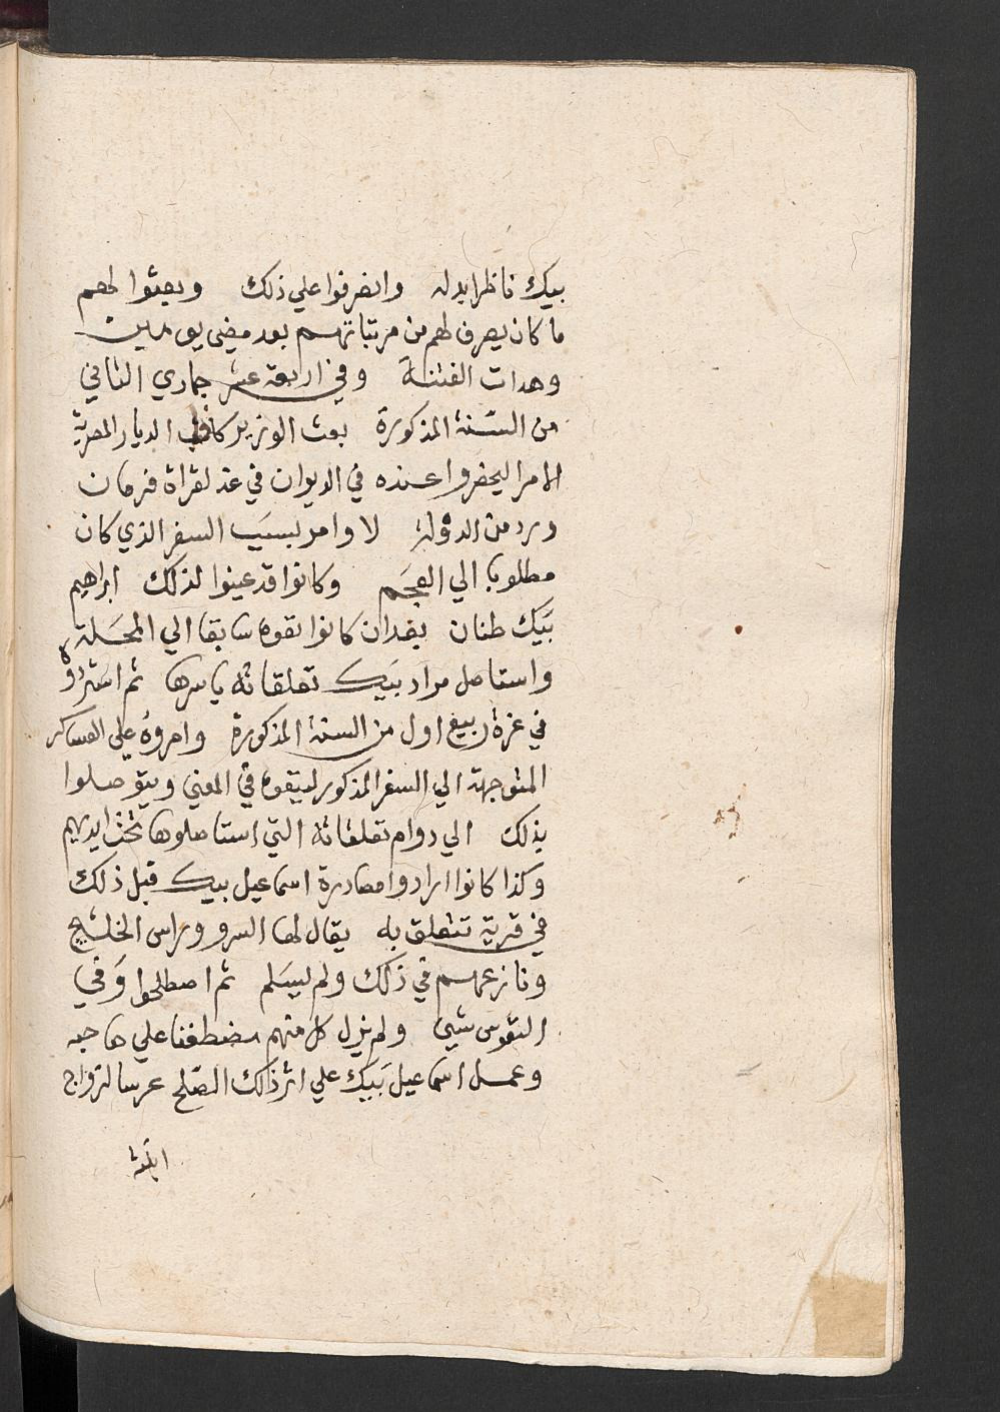 بيك ناظرا بدله وانصرفوا علي ذلك وبعثوا لهم
ما كان يصرف لهم من مرتباتهم بعد مضي يومين
وهدات الفتنة وفي اربعة عشر جمادي الثاني
من السنة المذكورة بعث الوزير الديار المصرية
الامرا ليحضروا عنده في الديوان في غد لقراة فرمان
ورد من الدولة لاوامر بسبب السفر الذي كان
مطلوبا الي العجم وكانوا قد عينوا لذلك ابراهيم
بيك طنان بعد ان كانوا نفوه سابقا الي المحلة
واستاصل مراد بيك تعلقاته باسرها ثم استردوه
في غرة ربيع اول من السنة المذكورة وامروه علي العساكر
المتوجهة الي السفر المذكور لينفوه في المعني ويتوصلوا
بذلك الي دوام تعلقاته التي استاصلوها تحت ايديهم
وكذا كانوا ارادوا مصادرة اسماعيل بيك قبل ذلك
في قرية تتعلق به يقال لها السرو وراس الخليج
ونازعهم في ذلك ولم يسلم ثم اصطلحوا وفي
النفوس شيئ ولم يزل كل منهم مضطغنا علي صاحبه
وعمل اسماعيل بيك علي اثر ذلك الصلح عرسا لزواج
ابنته